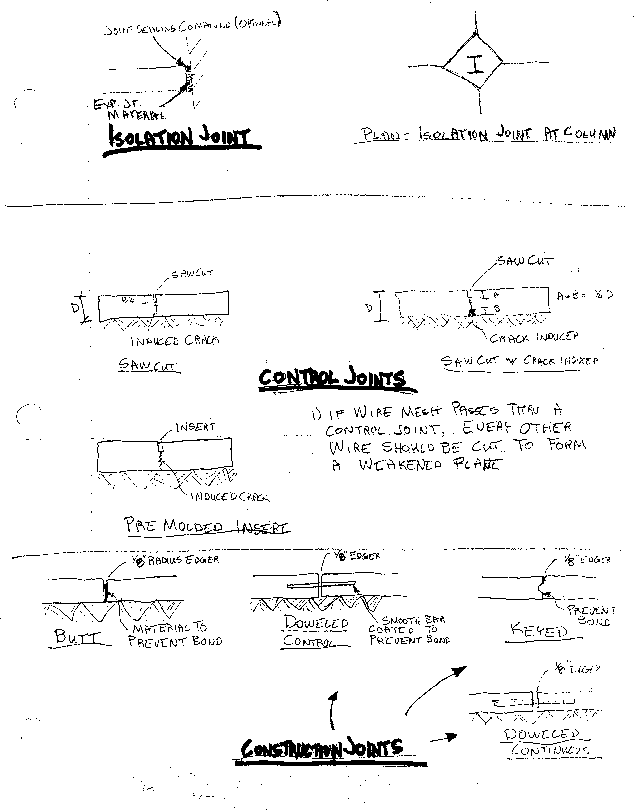 JOINT SEALING COMPOUND (OPTIONAL)
EXP. JT.
MATERIAL
ISOLATION JOINT
I
PLAN - ISOLATION JOINT AT COLUMN
SAWCUT
D
INDUCED CRACK
SAWCUT
SAWCUT
D
A
B
A+B = 
CRACK INDUCER
SAWCUT & CRACK INDUCER
CONTROL JOINTS
1) IF WIRE MESH PASSES THRU A
CONTROL JOINT, EVERY OTHER
WIRE SHOULD BE CUT TO FORM
A WEAKENED PLANE
INSERT
INDUCED CRACK
PRE MOLDED INSERT
1/8" RADIUS EDGER
MATERIAL TO
PREVENT BOND
BUTT
1/8" EDGER
DOWELED
CONTROL
SMOOTH BAR
COATED TO
PREVENT BOND
1/8" EDGER
PREVENT
BOND
KEYED
1/8" EDGER
DOWELED
CONTINUOUS
CONSTRUCTION JOINTS